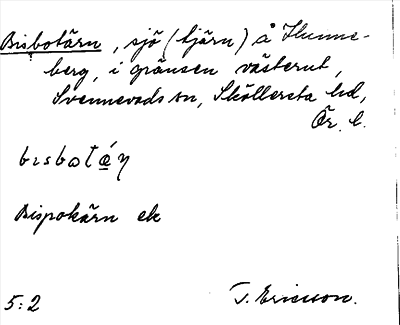 Bisbotärn, sjö (tjärn) å Hunne-
berg, i gränsen västerut,
Svennevads sn, Sköllersta hd,
Ör. l.
Bispokärn ek
5:2 T. Ericsson.